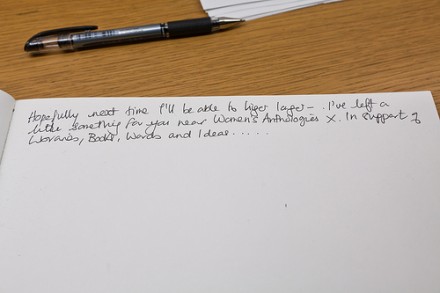 Hopefully next time I'll be able to linger longer – . I've left a
little something for you near Women's Anthologies X. In support of
Libraries, Books, Words and Ideas.....